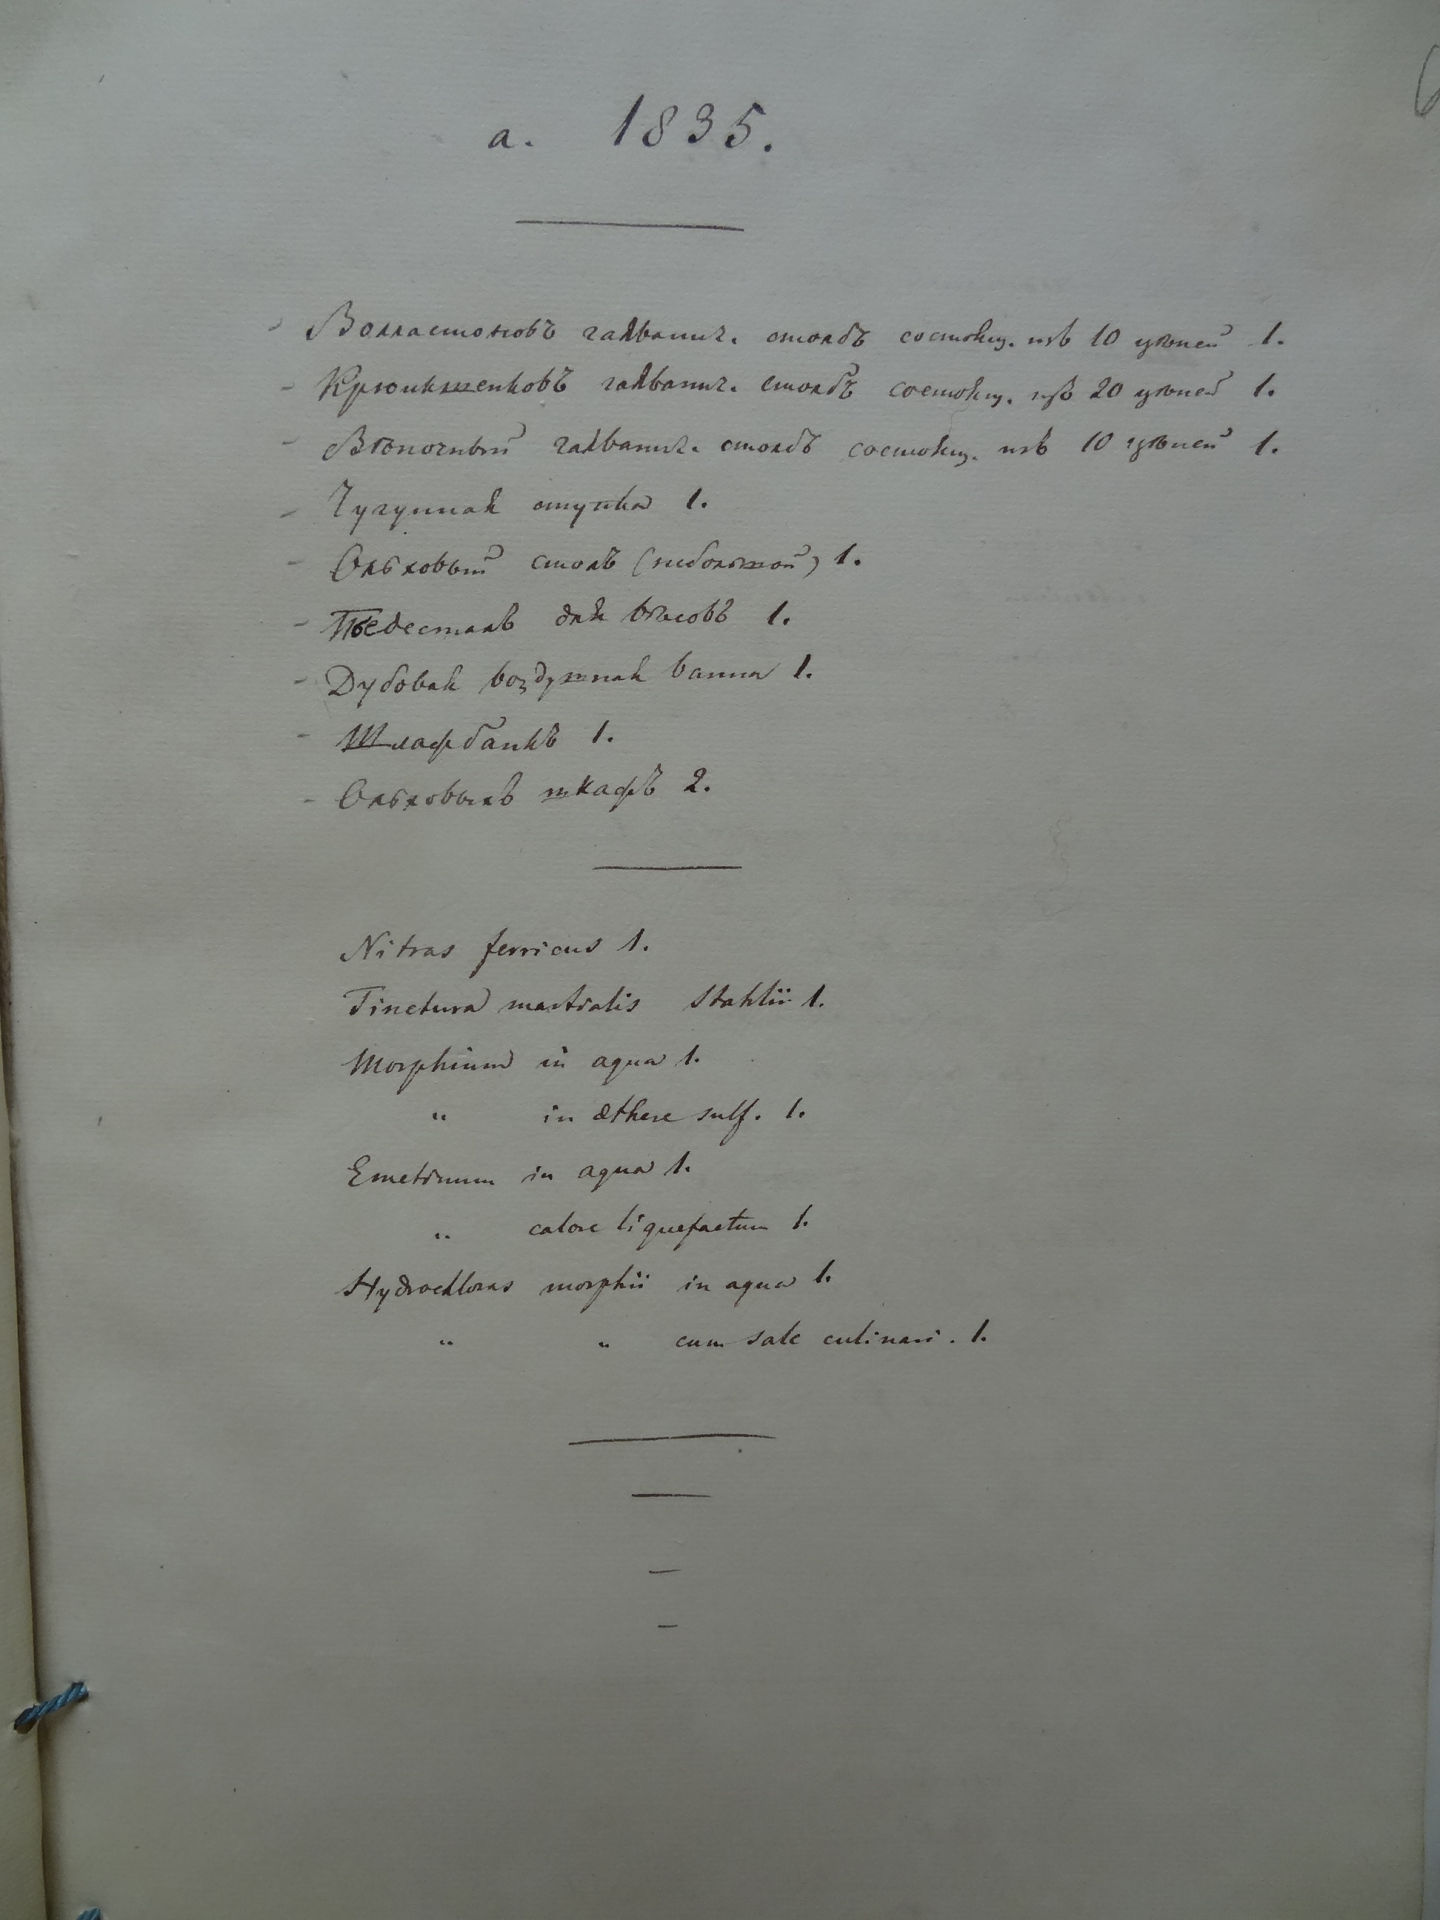 a. 1835.
Волластоновъ гальванич. столбъ состоящ. изъ 10 цѣпей 1.
Крюикшенковъ гальванич. столбъ состоящ. изъ 20 цѣпей 1.
гальванич. столбъ состоящ. изъ 10 цѣпей 1.
Чугунная ступка 1.
Ольховый столъ (небольшой) 1.
Пьедесталъ для вѣсовъ 1.
Дубовая воздушная ванна 1.
Шлафбанкъ 1.
Ольховыхъ шкафъ 2.
Nitras ferricus 1.
Tinctura martialis Stahlii 1.
Morphium in aqua 1.
" in æthere sulf. 1.
Emetinum in aqua 1.
" calore liquefactum 1.
Hydrochloras morphii in aqua 1.
" " cum sale culinari. 1.